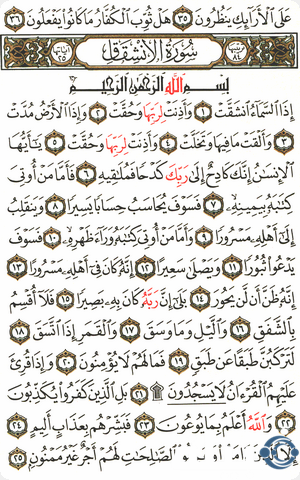 عَلَى الْأَرَائِكِ يَنظُرُونَ ٣٥ هَلْ ثُوِّبَ الْكُفَّارُ مَا كَانُوا يَفْعَلُونَ ٣٦
سُورَةُ الِانْشِقَاقِ
بِسْمِ اللَّهِ الرَّحْمَٰنِ الرَّحِيمِ
إِذَا السَّمَاءُ انشَقَّتْ ١ وَأَذِنَتْ لِرَبِّهَا وَحُقَّتْ ٢ وَإِذَا الْأَرْضُ مُدَّتْ
٣ وَأَلْقَتْ مَا فِيهَا وَتَخَلَّتْ ٤ وَأَذِنَتْ لِرَبِّهَا وَحُقَّتْ ٥ يَا أَيُّهَا
الْإِنسَانُ إِنَّكَ كَادِحٌ إِلَىٰ رَبِّكَ كَدْحًا فَمُلَاقِيهِ ٦ فَأَمَّا مَنْ أُوتِيَ
كِتَابَهُ بِيَمِينِهِ ٧ فَسَوْفَ يُحَاسَبُ حِسَابًا يَسِيرًا ٨ وَيَنقَلِبُ
إِلَىٰ أَهْلِهِ مَسْرُورًا ٩ وَأَمَّا مَنْ أُوتِيَ كِتَابَهُ وَرَاءَ ظَهْرِهِ ١٠ فَسَوْفَ
يَدْعُو ثُبُورًا ١١ وَيَصْلَىٰ سَعِيرًا ١٢ إِنَّهُ كَانَ فِي أَهْلِهِ مَسْرُورًا ١٣
إِنَّهُ ظَنَّ أَن لَّن يَحُورَ ١٤ بَلَىٰ إِنَّ رَبَّهُ كَانَ بِهِ بَصِيرًا ١٥ فَلَا أُقْسِمُ
بِالشَّفَقِ ١٦ وَاللَّيْلِ وَمَا وَسَقَ ١٧ وَالْقَمَرِ إِذَا اتَّسَقَ ١٨
لَتَرْكَبُنَّ طَبَقًا عَن طَبَقٍ ١٩ فَمَا لَهُمْ لَا يُؤْمِنُونَ ٢٠ وَإِذَا قُرِئَ
عَلَيْهِمُ الْقُرْآنُ لَا يَسْجُدُونَ ۩ ٢١ بَلِ الَّذِينَ كَفَرُوا يُكَذِّبُونَ
٢٢ وَاللَّهُ أَعْلَمُ بِمَا يُوعُونَ ٢٣ فَبَشِّرْهُم بِعَذَابٍ أَلِيمٍ ٢٤
الصَّالِحَاتِ لَهُمْ أَجْرٌ غَيْرُ مَمْنُونٍ ٢٥